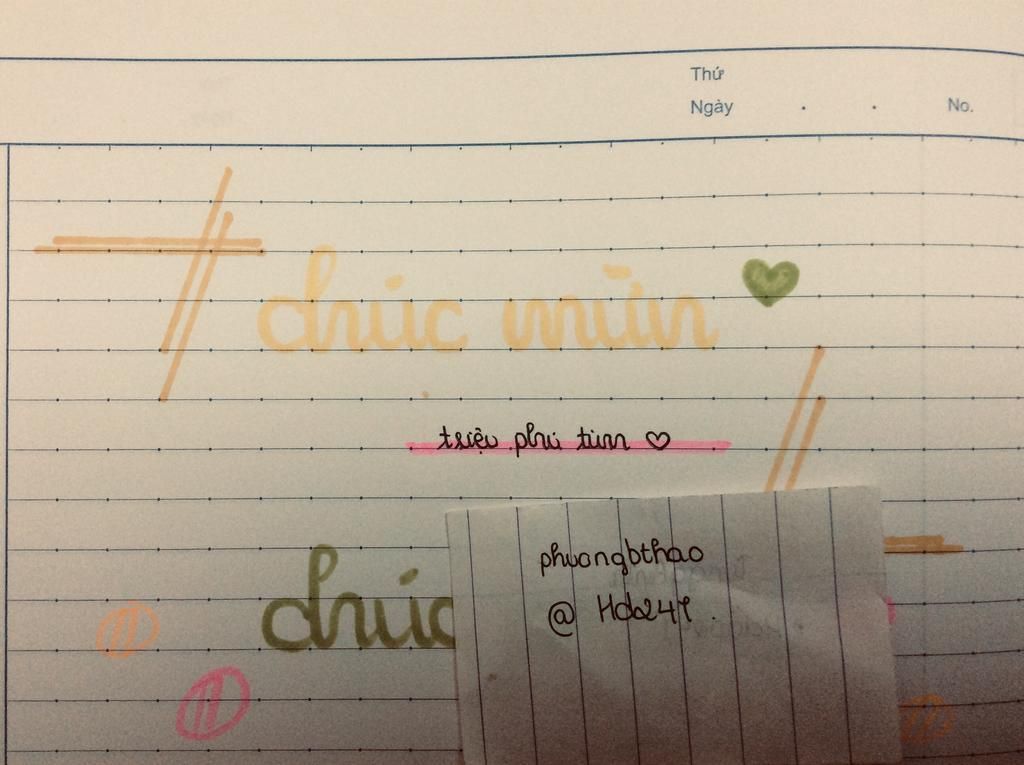 Thứ
Ngày . . No.
chúc mừn
triệu phú từn ♡
phuongbthao
@ Hdo247.
chúc